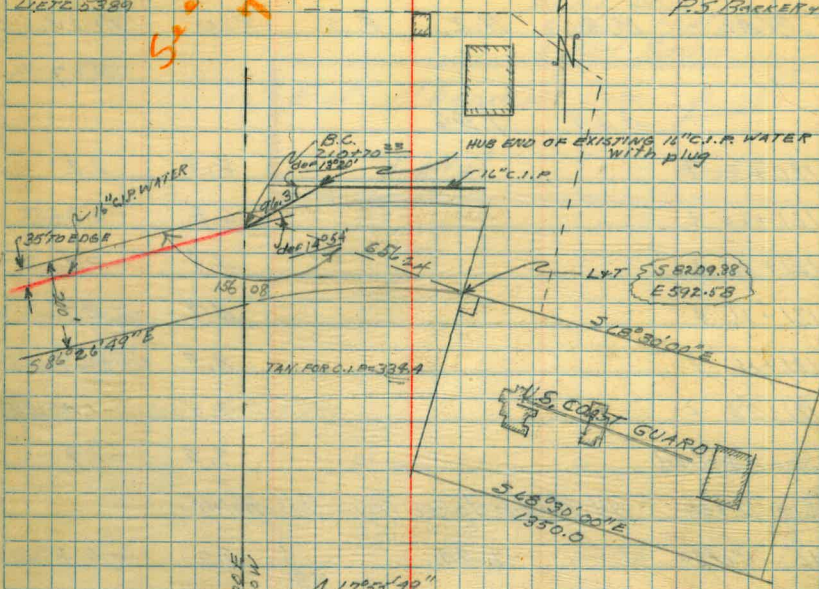 P.S BARKER
B.C.
210+70
def 13°20'
HUB END OF EXISTING 16"C.I.P. WATER
with plug
16"C.I.P.
16"C.I.P. WATER
96.3
35' TO EDGE
def 14°54'
656.24
L&T
S 8209.38
E 592.58
156 08
200'
S 86°26'49"E
S 68°30'00"E
TAN. FOR C.I.P.=334.4
U.S. COAST GUARD
S 68°30'00"E
1350.0